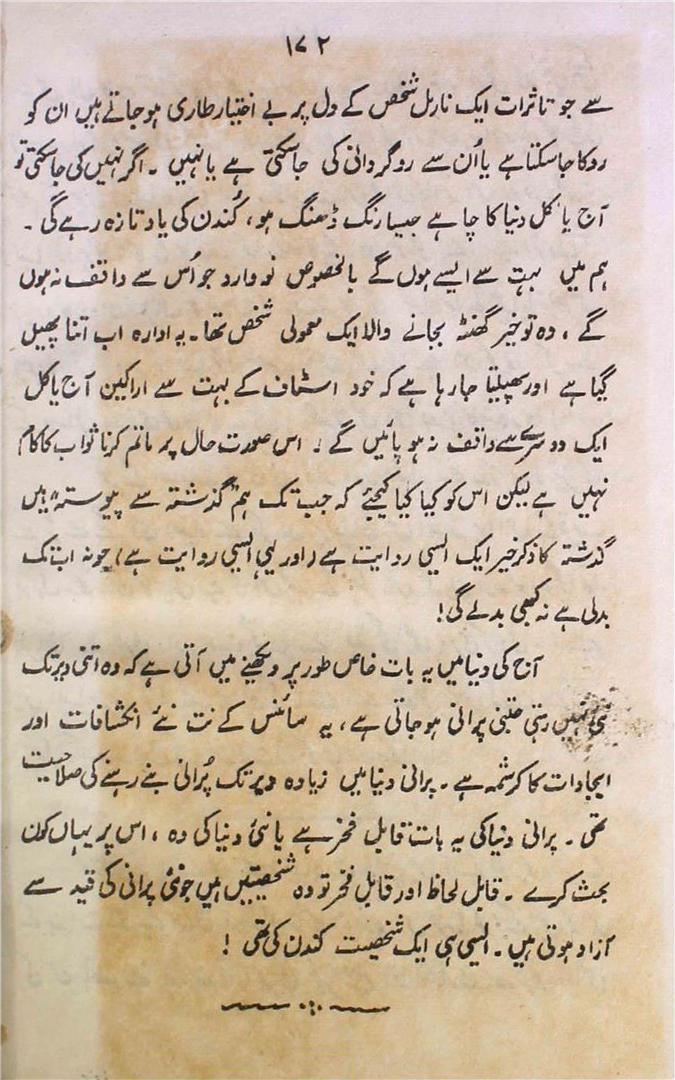 ۱۷۲
سے جو تاثرات ایک نارمل شخص کے دل پر بے اختیار طاری ہو جاتے ہیں ان کو
روکا جا سکتا ہے یا اُن سے روگردانی کی جا سکتی ہے یا نہیں ۔ اگر نہیں کی جا سکتی تو
آج یا کل دنیا کا چاہے جیسا رنگ ڈھنگ ہو، کُندن کی یاد تازہ رہے گی ۔
ہم میں بہت سے ایسے ہوں گے بالخصوص نو وارد جو اُس سے واقف نہ ہوں
گے ، وہ تو خیر گھنٹہ بجانے والا ایک معمولی شخص تھا ۔ یہ ادارہ اب اتنا پھیل
گیا ہے اور پھیلتا جا رہا ہے کہ خود اسٹاف کے بہت سے اراکین آج یا کل
ایک دوسرے سے واقف نہ ہو پائیں گے ۔ اس صورت حال پر ماتم کرنا ثواب کا کام
نہیں ہے لیکن اس کو کیا کیا کیجئے کہ جب تک ہم گذشتہ سے پیوستہ ہیں
گذشتہ کا ذکر خیر ایک ایسی روایت ہے (اور یہی ایسی روایت ہے) جو نہ اب تک
بدلی ہے نہ کبھی بدلے گی!
آج کی دنیا میں یہ بات خاص طور پر دیکھنے میں آتی ہے کہ وہ اتنی دیر تک
نئی نہیں رہتی جتنی پرانی ہو جاتی ہے ، یہ سائنس کے نت نئے انکشافات اور
ایجادات کا کرشمہ ہے ۔ پرانی دنیا میں زیادہ دیر تک پُرانی بنے رہنے کی صلاحیت
تھی ۔ پرانی دنیا کی یہ بات قابل فخر ہے یا نئی دنیا کی وہ ، اس پر یہاں کون
بحث کرے ۔ قابل لحاظ اور قابل فخر تو وہ شخصیتیں ہیں جو نئی پرانی کی قید سے
آزاد ہوتی ہیں ۔ ایسی ہی ایک شخصیت کندن کی تھی !